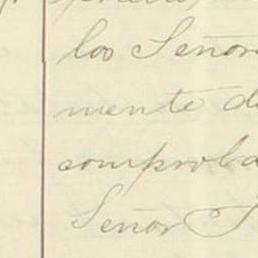 los Señor
mente d
comproba
Señor